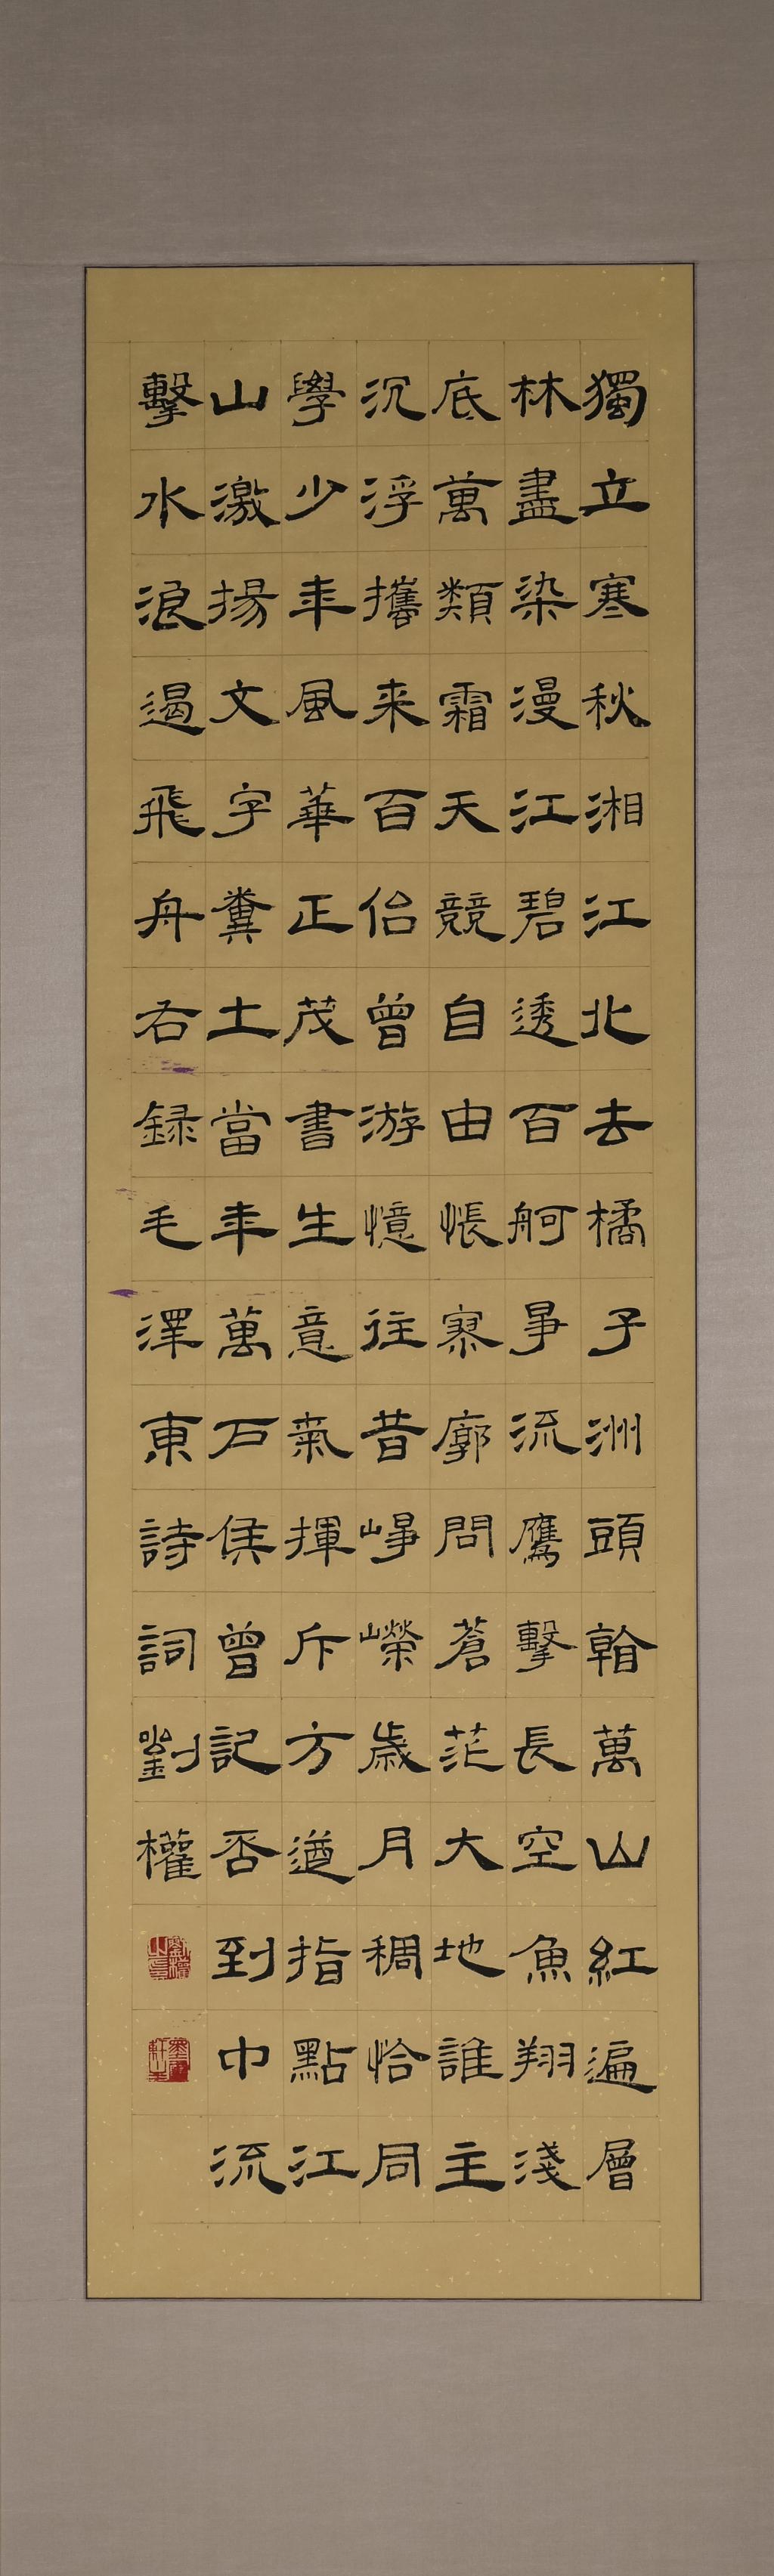 獨立寒秋湘江北去橘子洲頭看萬山紅遍層
林盡染漫江碧透百舸爭流鷹擊長空魚翔淺
底萬類霜天競自由悵寥廓問蒼茫大地誰主
沉浮攜来百侶曾游憶往昔崢嶸歲月稠恰同
學少年風華正茂書生意氣揮斥方遒指點江
山激揚文字糞土當年萬户侯曾記否到中流
擊水浪遏飛舟右録毛澤東詩詞劉權